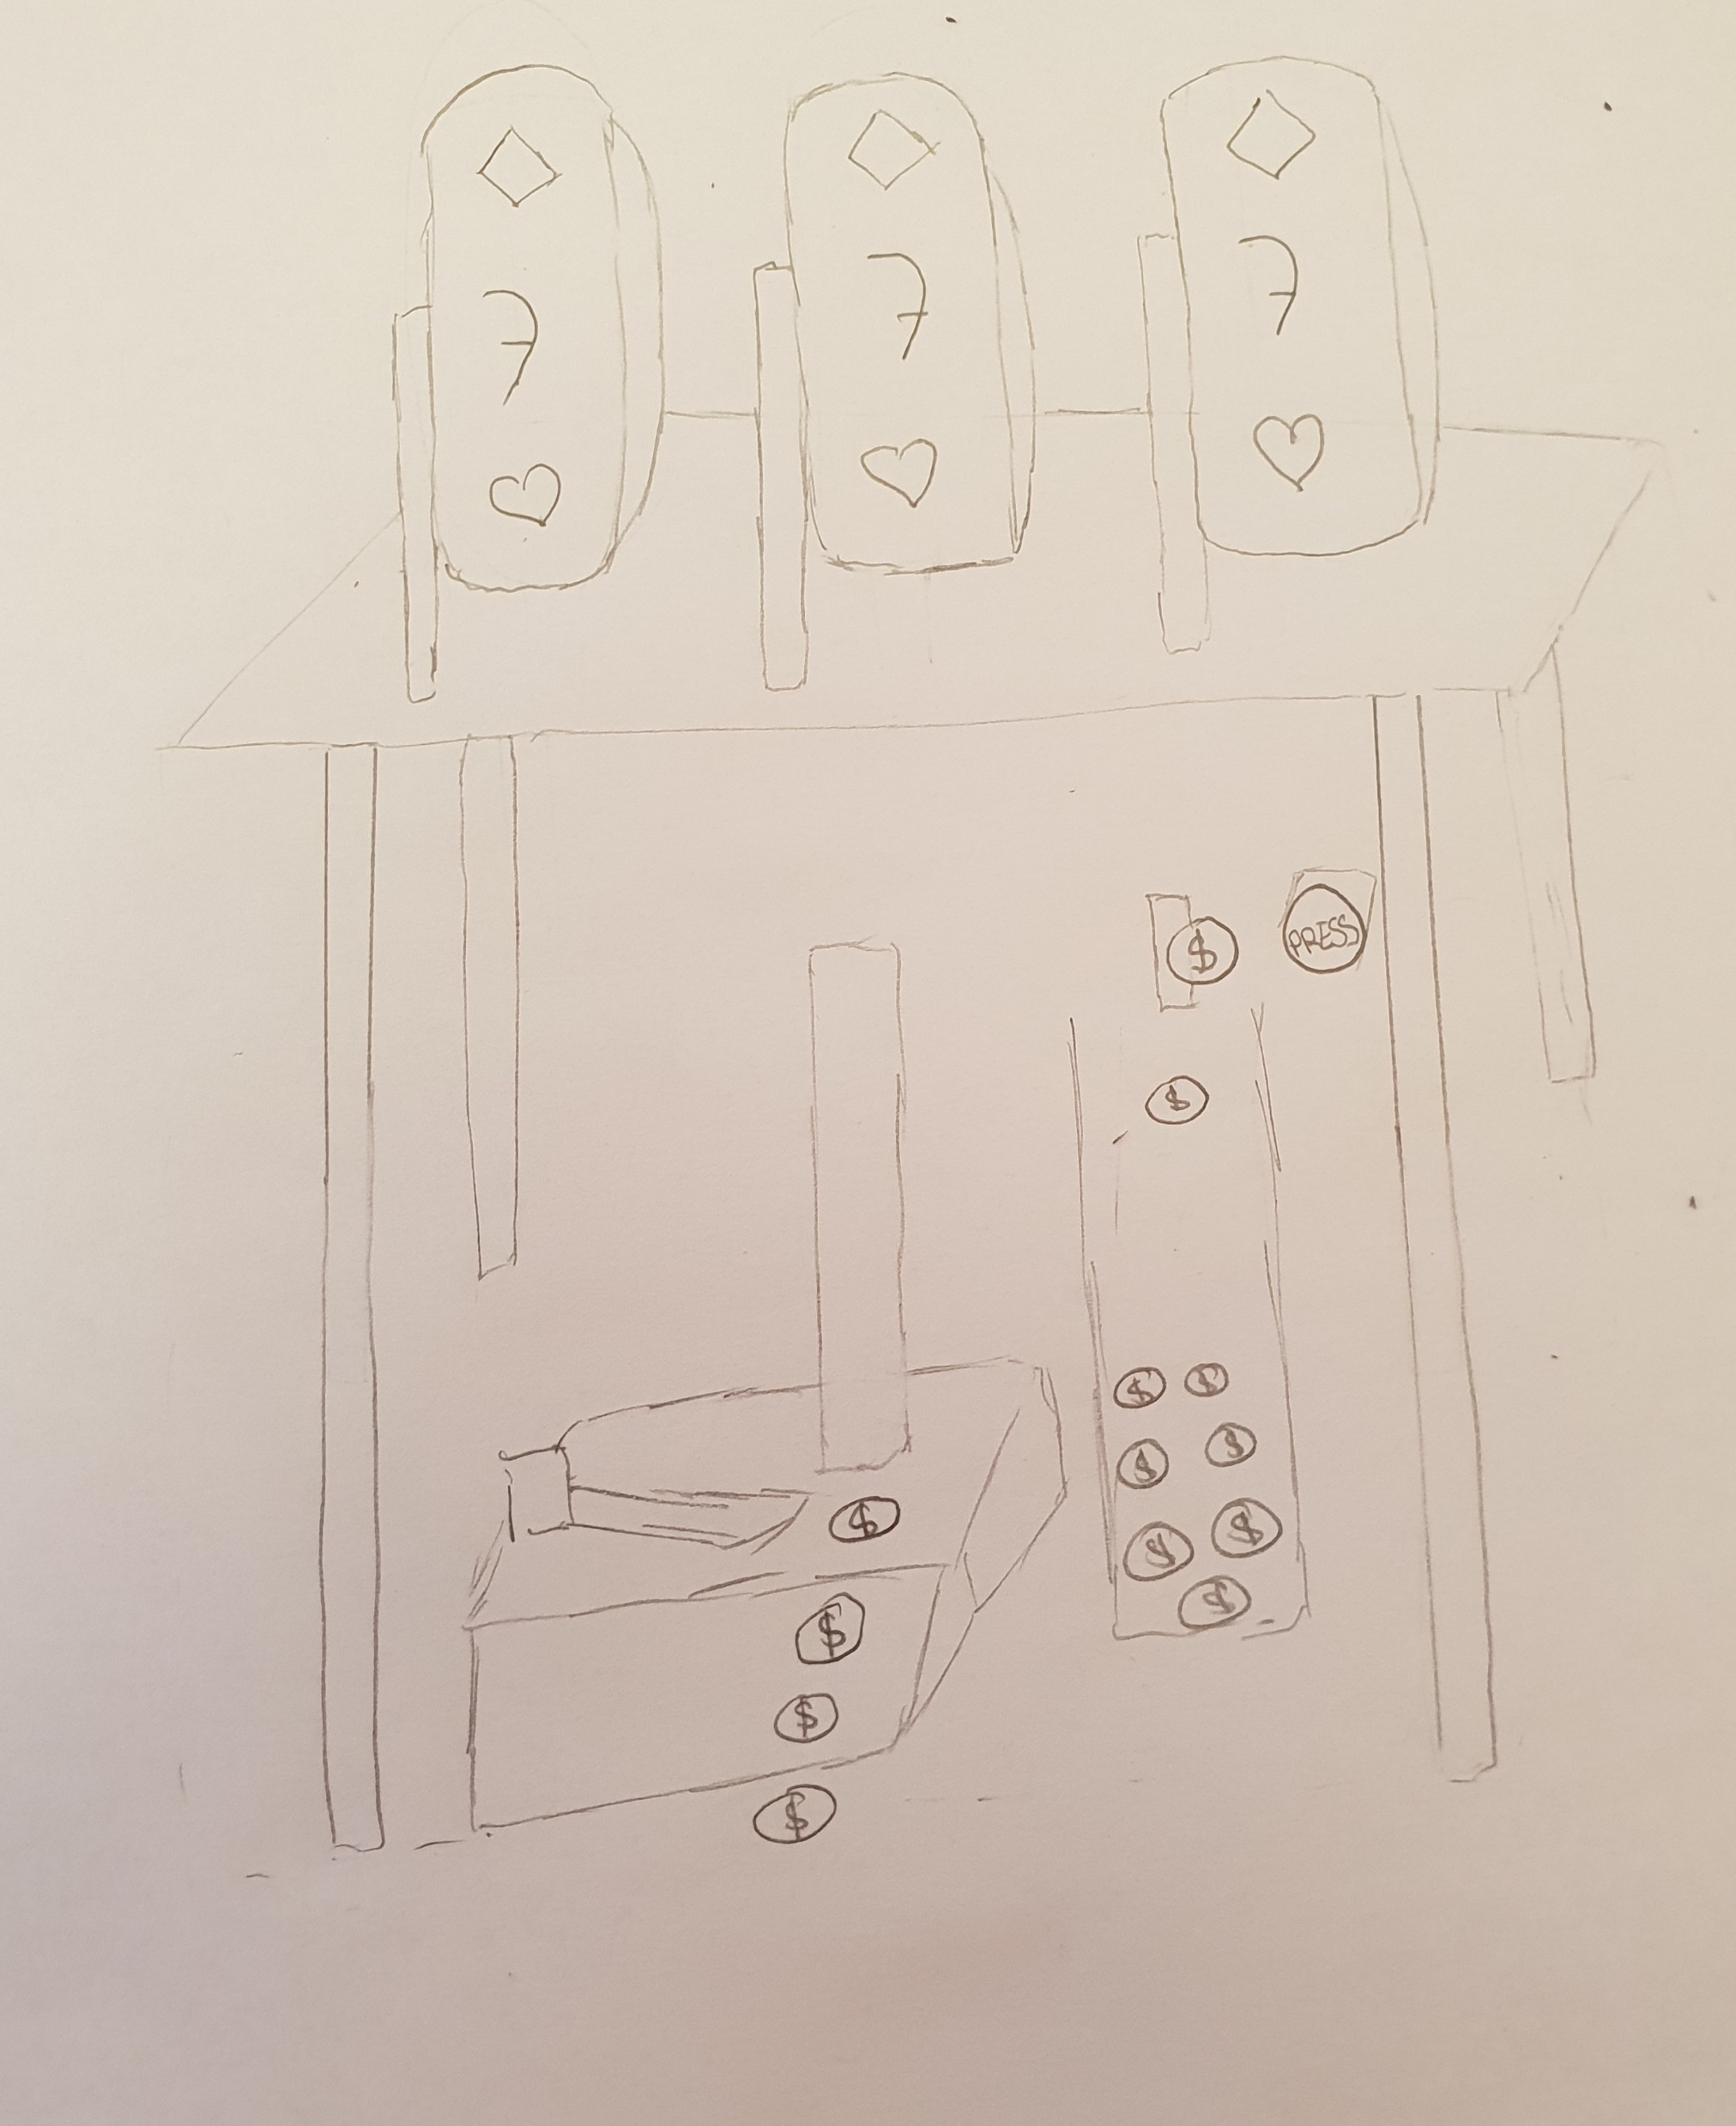 7 7 7
$ PRESS
$
$ $
$ $
$ $
$
$
$
$
$